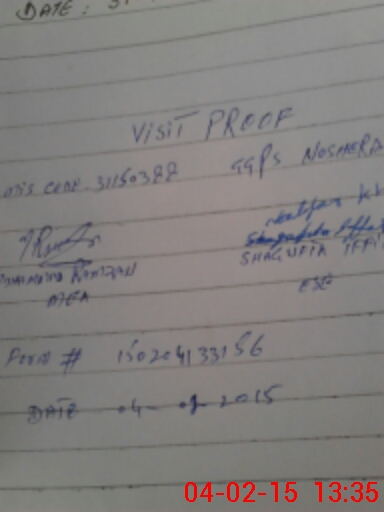 DATE :
VISIT PROOF
EMIS CODE 31150388 GGPS NOSHERA
RAMZAN SHAGUFTA IFFAT
MEA ESE
FORM # 150204133156
DATE 04-02-2015
04-02-15 13:35